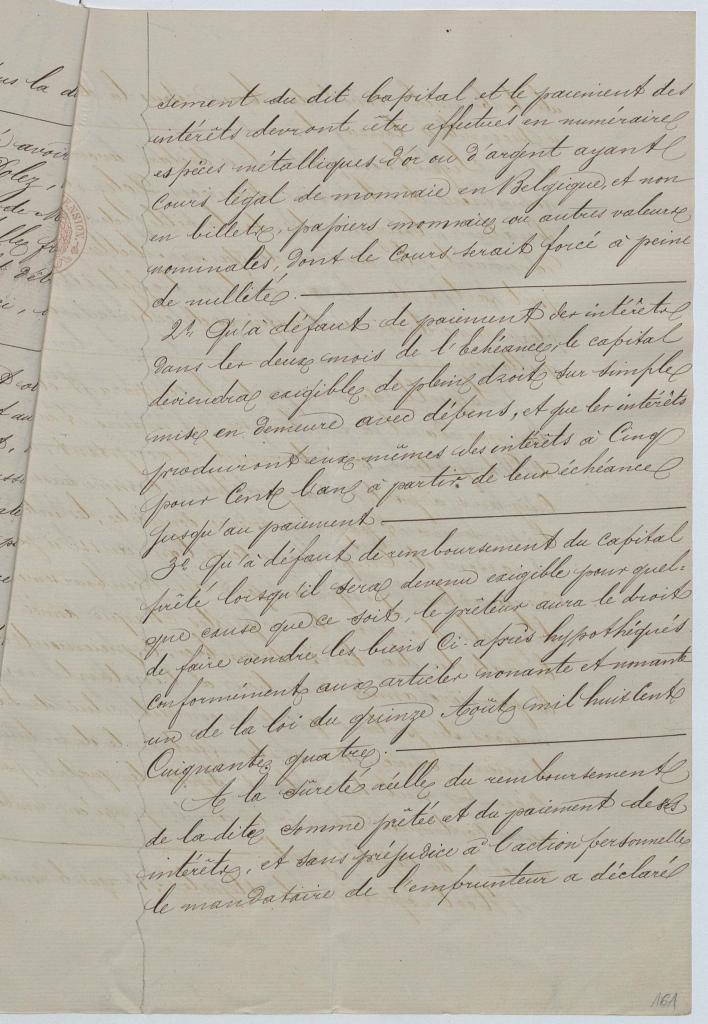 sement du dit Capital et le paiement des
intérêts devront être effectués en numéraire
espèces métalliques d'or ou d'argent ayant
cours légal de monnaie en Belgique, et non
en billets, papiers monnaies ou autres valeurs
nominales, dont le cours serait forcé à peine
de nullité.
2° Qu'à défaut de paiement des intérêts
dans les deux mois de l'échéance, le capital
deviendra exigible de plein droit sur simple
mise en demeure avec dépens, et que les intérêts
produiront eux mêmes des intérêts à Cinq
pour Cent l'an à partir de leur échéance
jusqu'au paiement
3° Qu'à défaut de remboursement du capital
prêté lorsqu'il sera devenu exigible pour quel-
que cause que ce soit, le prêteur aura le droit
de faire vendre les biens ci-après hypothéqués
conformément aux articles nonante et nonante
un de la loi du quinze Août mil huit Cent
Cinquante quatre.
A la sûreté réelle du remboursement
de la dite somme prêtée et du paiement de ses
intérêts, et sans préjudice à l'action personnelle
le mandataire de l'emprunteur a déclaré
161